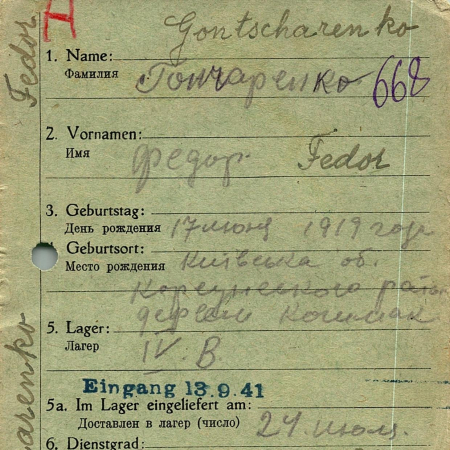 Fedor
H
Gontscharenko
1. Name:
Фамилия
Гончаренко
668
2. Vornamen:
Имя
Федор. Fedor
3. Geburtstag:
День рождения 17 июня 1919 года
Geburtsort:
Место рождения Київська об.
района
деревня
5. Lager:
Лагер IV. B.
Eingang 13.9.41
5a. Im Lager eingeliefert am:
Доставлен в лагер (число) 24 июля.
6. Dienstgrad:
arenko